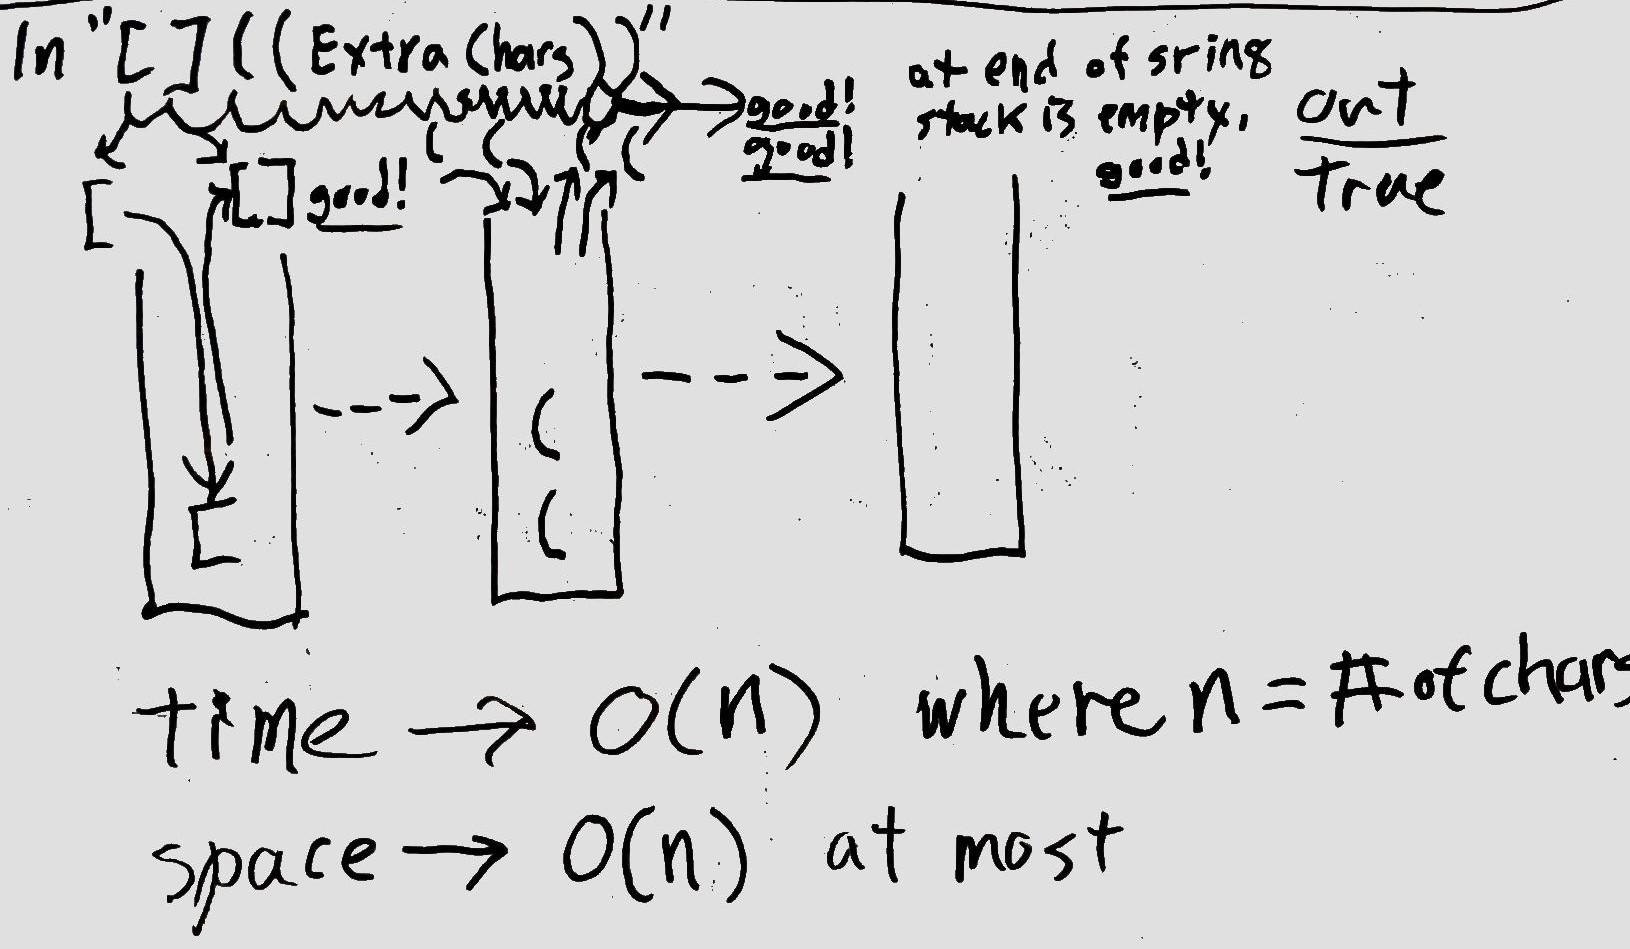 In "[]((Extra Chars))"
good!
good!
at end of sring
stack is empty,
good!
out
true
[
[] good!
( ( ( (
[
(
(
time → O(n) where n = # of chars
space → O(n) at most